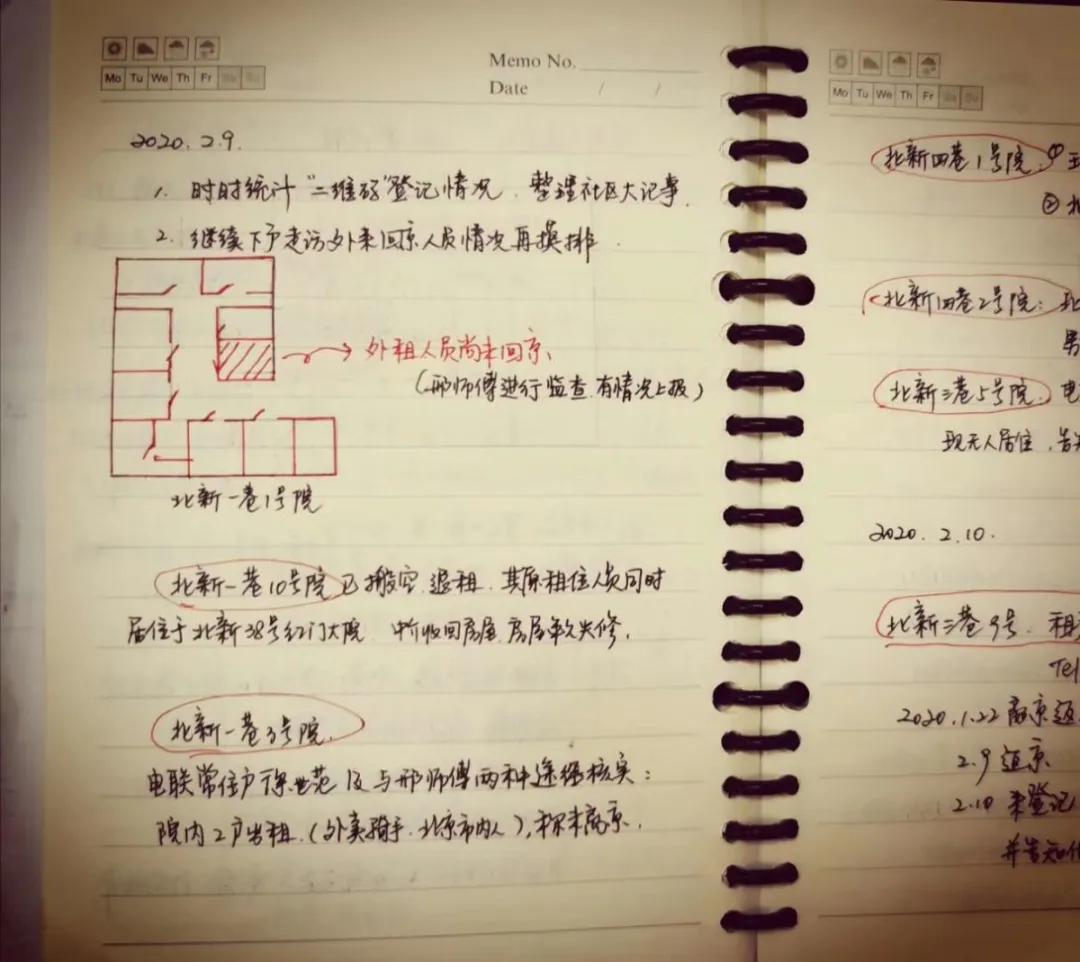 Memo No.
Date / /
Mo Tu We Th Fr Sa Su
2020.2.9.
1. 时时统计"二维码"登记情况.整理社区大记事.
2. 继续下户走访外来回京人员情况再摸排.
外租人员尚未回京、
(邢师傅进行监查.有情况上报)
北新一巷1号院
北新一巷10号院已搬空.退租.其原租住人员同时
居住于北新38号红门大院.中介收回房屋.房屋年久失修.
北新一巷3号院.
电联常住户 及与邢师傅两种途径核实:
院内2户出租.(外卖骑手.北京市内人),未离京.
Mo Tu We Th Fr Sa Su
北新四巷1号院:①
② 北
北新四巷2号院:北
男
北新三巷5号院:电
现无人居住.告
2020.2.10.
北新三巷9号.租
Tel
2020.1.22离京返
2.9返京
2.10来登记
并告知